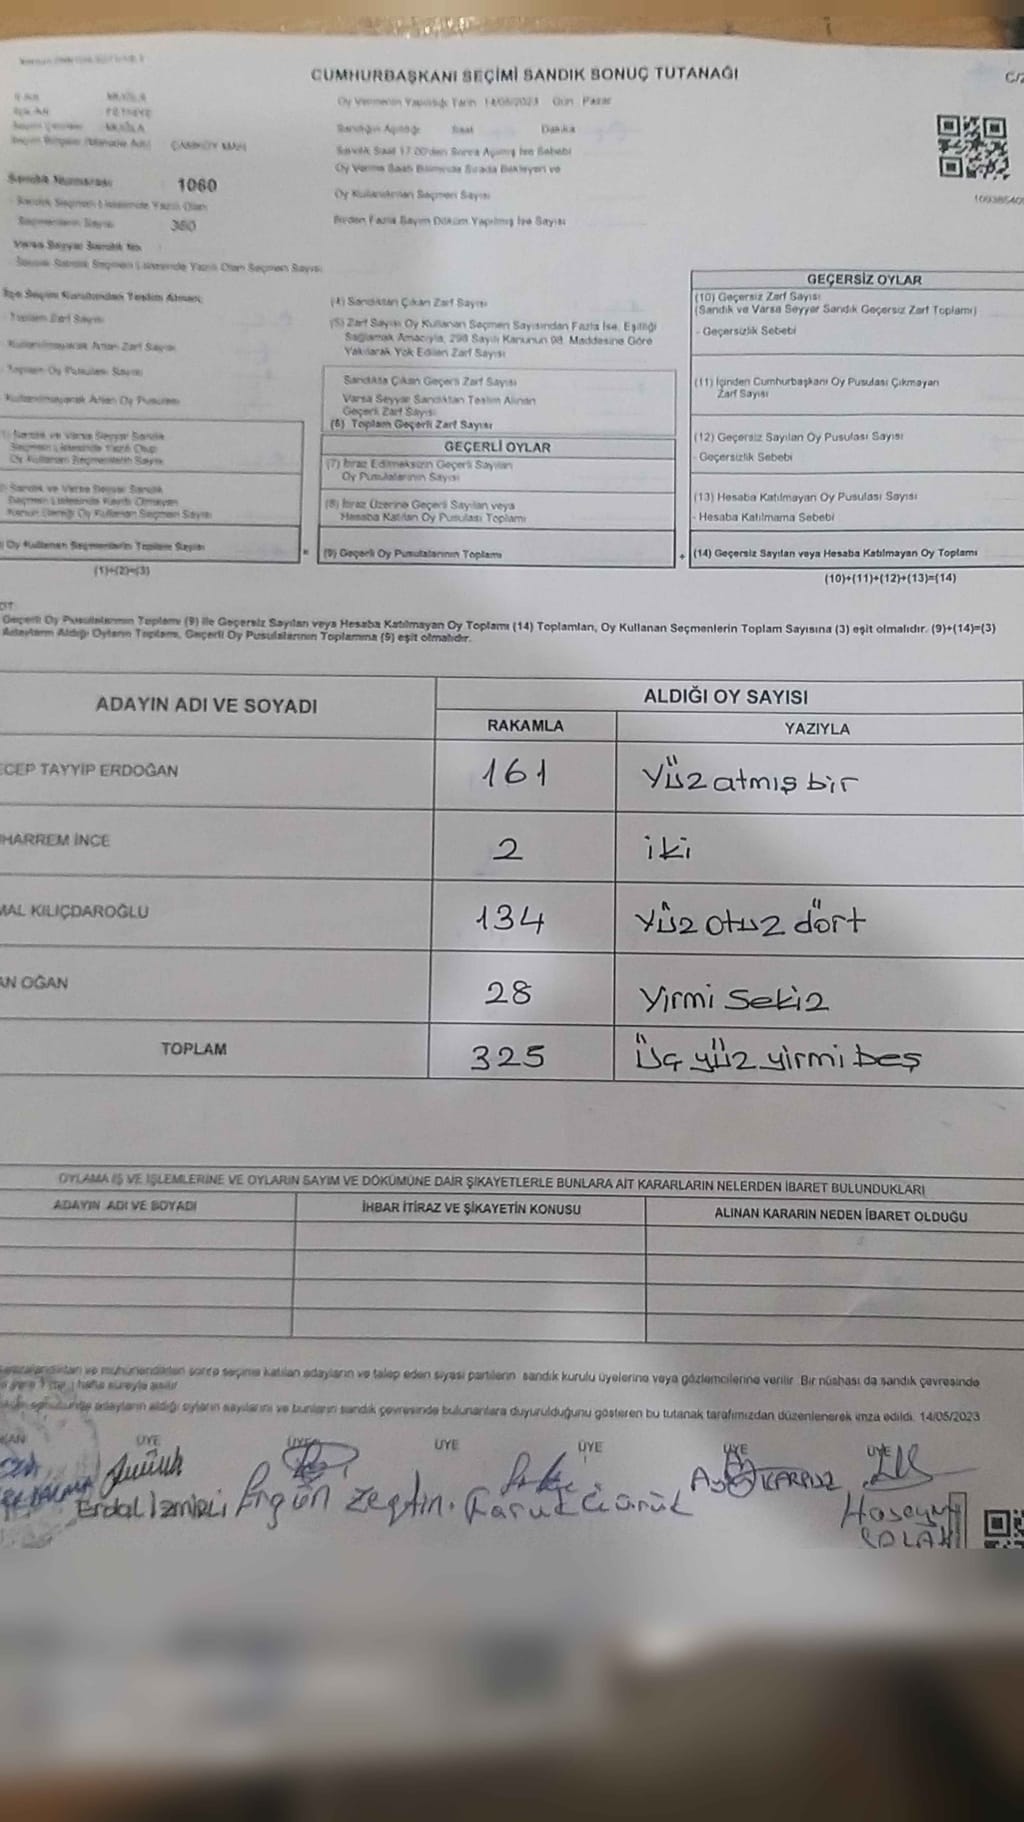 CUMHURBAŞKANI SEÇİMİ SANDIK SONUÇ TUTANAĞI
Oy Vermenin Yapıldığı Tarih 14/05/2023 Gün Pazar
MUĞLA
FETHİYE
MUĞLA
Sandığın Açıldığı Saat Dakika
Sandık Saat 17.00'den Sonra Açılmış İse Sebebi
Oy Verme Saati Bitiminde Sırada Bekleyen ve
Oy Kullandırılan Seçmen Sayısı
Birden Fazla Sayım Döküm Yapılmış İse Sayısı
Sandık Numarası 1060
Sandık Seçmen Listesinde Yazılı Olan
Seçmenlerin Sayısı 350
Varsa Seyyar Sandık No
Seyyar Sandık Seçmen Listesinde Yazılı Olan Seçmen Sayısı
İlçe Seçim Kurulundan Teslim Alınan;
Toplam Zarf Sayısı
Kullanılmayarak Artan Zarf Sayısı
Toplam Oy Pusulası Sayısı
Kullanılmayarak Artan Oy Pusulası
Sandık ve Varsa Seyyar Sandık
Seçmen Listesinde Yazılı Olup
Oy Kullanan Seçmenlerin Sayısı
Sandık ve Varsa Seyyar Sandık
Seçmen Listesinde Kayıtlı Olmayan
Kanun Gereği Oy Kullanan Seçmen Sayısı
Oy Kullanan Seçmenlerin Toplam Sayısı
(1)+(2)=(3)
(4) Sandıktan Çıkan Zarf Sayısı
(5) Zarf Sayısı Oy Kullanan Seçmen Sayısından Fazla İse, Eşitliği
Sağlamak Amacıyla, 298 Sayılı Kanunun 98. Maddesine Göre
Yakılarak Yok Edilen Zarf Sayısı
Sandıkta Çıkan Geçerli Zarf Sayısı
Varsa Seyyar Sandıktan Teslim Alınan
Geçerli Zarf Sayısı
(6) Toplam Geçerli Zarf Sayısı
GEÇERLİ OYLAR
(7) İtiraz Edilmeksizin Geçerli Sayılan
Oy Pusulalarının Sayısı
(8) İtiraz Üzerine Geçerli Sayılan veya
Hesaba Katılan Oy Pusulası Toplamı
= (9) Geçerli Oy Pusulalarının Toplamı
GEÇERSİZ OYLAR
(10) Geçersiz Zarf Sayısı
(Sandık ve Varsa Seyyar Sandık Geçersiz Zarf Toplamı)
- Geçersizlik Sebebi
(11) İçinden Cumhurbaşkanı Oy Pusulası Çıkmayan
Zarf Sayısı
(12) Geçersiz Sayılan Oy Pusulası Sayısı
- Geçersizlik Sebebi
(13) Hesaba Katılmayan Oy Pusulası Sayısı
- Hesaba Katılmama Sebebi
+ (14) Geçersiz Sayılan veya Hesaba Katılmayan Oy Toplamı
(10)+(11)+(12)+(13)=(14)
Geçerli Oy Pusulalarının Toplamı (9) ile Geçersiz Sayılan veya Hesaba Katılmayan Oy Toplamı (14) Toplamları, Oy Kullanan Seçmenlerin Toplam Sayısına (3) eşit olmalıdır. (9)+(14)=(3)
Adayların Aldığı Oyların Toplamı, Geçerli Oy Pusulalarının Toplamına (9) eşit olmalıdır.
ADAYIN ADI VE SOYADI ALDIĞI OY SAYISI
RAKAMLA YAZIYLA
ECEP TAYYİP ERDOĞAN 161 Yüz atmış bir
HARREM İNCE 2 iki
MAL KILIÇDAROĞLU 134 Yüz otuz dört
AN OĞAN 28 Yirmi Sekiz
TOPLAM 325 Üç yüz yirmi beş
OYLAMA İŞ VE İŞLEMLERİNE VE OYLARIN SAYIM VE DÖKÜMÜNE DAİR ŞİKAYETLERLE BUNLARA AİT KARARLARIN NELERDEN İBARET BULUNDUKLARI
ADAYIN ADI VE SOYADI İHBAR İTİRAZ VE ŞİKAYETİN KONUSU ALINAN KARARIN NEDEN İBARET OLDUĞU
ve mühürlendikten sonra seçime katılan adayların ve talep eden siyasi partilerin sandık kurulu üyelerine veya gözlemcilerine verilir. Bir nüshası da sandık çevresinde
hafta süreyle asılır.
adayların aldığı oyların sayılarını ve bunların sandık çevresinde bulunanlara duyurulduğunu gösteren bu tutanak tarafımızdan düzenlenerek imza edildi. 14/05/2023
KAN ÜYE ÜYE ÜYE ÜYE ÜYE ÜYE
Erdal İzmirli Ergün Zeytin. Faruk